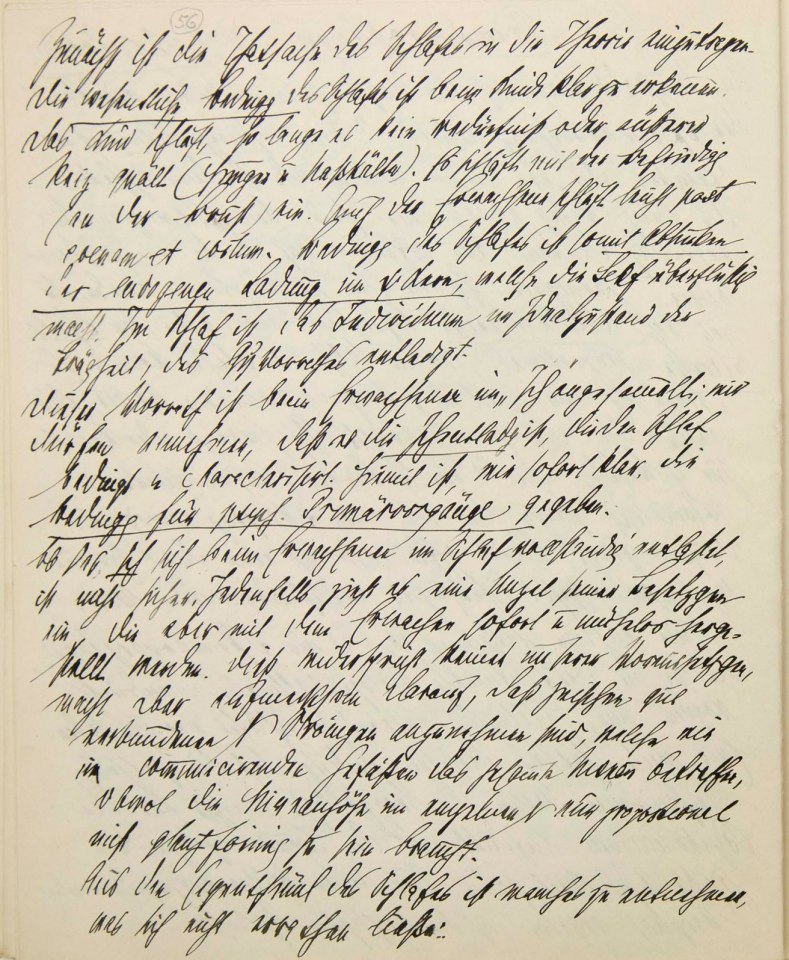 56
Zunächst ist die Thatsache des Schlafes in die Theorie einzutragen.
Die wesentliche Bedingg des Schlafes ist beim Kinde klar zu erkennen.
Das Kind schläft, so lange es kein Bedürfniß oder äußerer
Reiz quält (Hunger u Naßkälte). Es schläft mit der Befriedigg
(an der Brust) ein. Auch der Erwachsene schläft leicht post
coenam et coitum. Bedingg des Schlafes ist somit Absinken
der endogenen Ladung im ψ Kern, welche die Secf überflüssig
macht. Im Schlaf ist das Individuum im Idealzustand der
Trägheit, des Qή Vorrathes entledigt.
Dieser Vorrath ist beim Erwachsenen im „Ich“ angesammelt; wir
dürfen annehmen, daß es die Ichentladg ist, die den Schlaf
bedingt u charakterisirt. Hiemit ist, wie sofort klar, die
Bedingg für psych. Primärvorgänge gegeben.
Ob das Ich sich beim Erwachsenen im Schlaf vollständig entlastet,
ist nicht sicher. Jedenfalls zieht es eine Unzahl seiner Besetzgen
ein die aber mit dem Erwachen sofort u mühelos herge-
stellt werden. Dieß widerspricht keiner unserer Voraussetzgen,
macht aber aufmerksam darauf, daß zwischen gut
verbundenen N Strömgen anzunehmen sind, welche wie
in communicirenden Gefäßen das gesamte Niveau betreffen,
obwol die Niveauhöhe im einzelnen N nur proportional
nicht gleichförmig zu sein braucht.
Aus den Eigenthüml des Schlafes ist manches zu entnehmen,
was sich nicht errathen ließe: